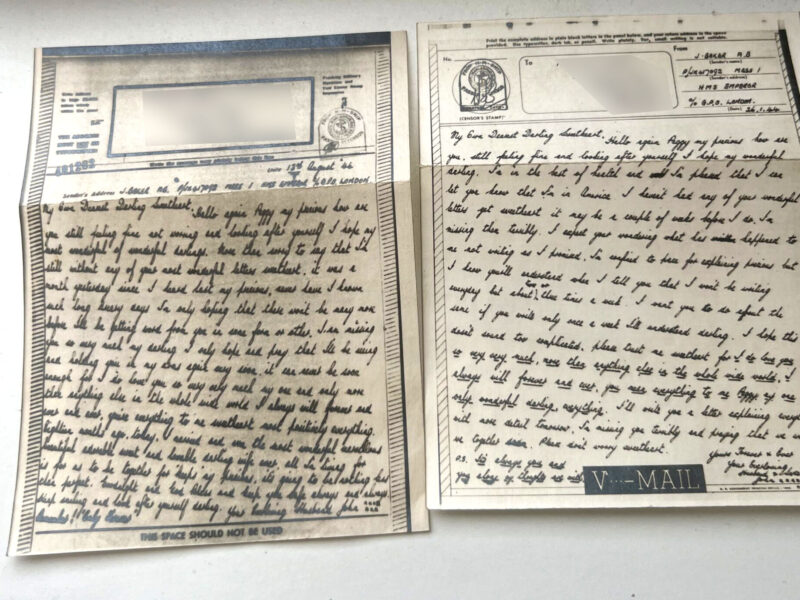 Write the message very plainly below this line
Date 13th August 44
Sender's address J. BAKER AB. P/JX417093 MESS 1 HMS EMPEROR C/O G.P.O. LONDON.
My Own Dearest Darling Sweetheart,
Hello again Peggy my precious how are
you still feling fine not worring and looking after yourself I hope my
most wonderful of wonderful darlings. More than sorry to say that I'm
still without any of your most wonderful letters sweetheart, it was a
month yesterday since I heard last my precious, never have I known
such long weary days I'm only hoping that there won't be many more
before I'll be getting word from you in some form or other. I am missing
you so very much my darling I only hope and pray that I'll be seeing
and holding you in my arms again very soon, it can never be soon
enough for I do love you so very very much my one and only more
than anything else in the whole wide world I always will forever and
ever and ever, you're everything to me sweetheart most positively everything.
Eighteen months ago, today, I married and won the most wonderful
beautiful adorable sweet and lovable darling wife ever, all I'm living for
is for us to be together for keeps my precious, it's going to be
perfect. Goodnight and God bless and keep you safe always and always
keep smiling and look after yourself darling. Your Husband John xxxx
THIS SPACE SHOULD NOT BE USED
Print the complete address in plain block letters in the panel below, and your return address in the space
provided. Use typewriter, dark ink, or pencil. Write plainly. Very small writing is not suitable.
No.
To
From
J. BAKER A.B
(Sender's name)
P/JX417093 MESS 1
(Sender's address)
HMS EMPEROR
C/O G.P.O. LONDON.
(CENSOR'S STAMP)
(Date) 26.1.44
My Own Dearest Darling Sweetheart,
Hello again Peggy my precious how are
you, still feling fine and looking after yourself I hope my wonderful
darling. I'm in the best of health and so I'm pleased that I can
let you know that I'm in America I haven't had any of your wonderful
letters yet sweetheart it may be a couple of weeks before I do. I'm
missing them terribly. I expect your wondering what has happened to
me not writing as I promised, I'm confined to peace for explaining precious but
I know you'll understand when I tell you that I won't be writing
everyday but about two or three times a week. I want you to do the
same if you write only once a week I'll understand darling. I hope this
doesn't sound too complicated, please trust me sweetheart for I do love you
so very very much, more than anything else in the whole wide world, I
always will forever and ever, you mean everything to me Peggy my one
only, wonderful darling, everything. I'll write you a letter explaining everything
with more detail tomorrow. I'm missing you terribly and praying that we
be together soon. Please don't worry sweetheart.
Yours Forever & Ever
Your Everloving
Husband
John xxxx
P.S. It's always you and
you alone my thoughts are with
V···—MAIL